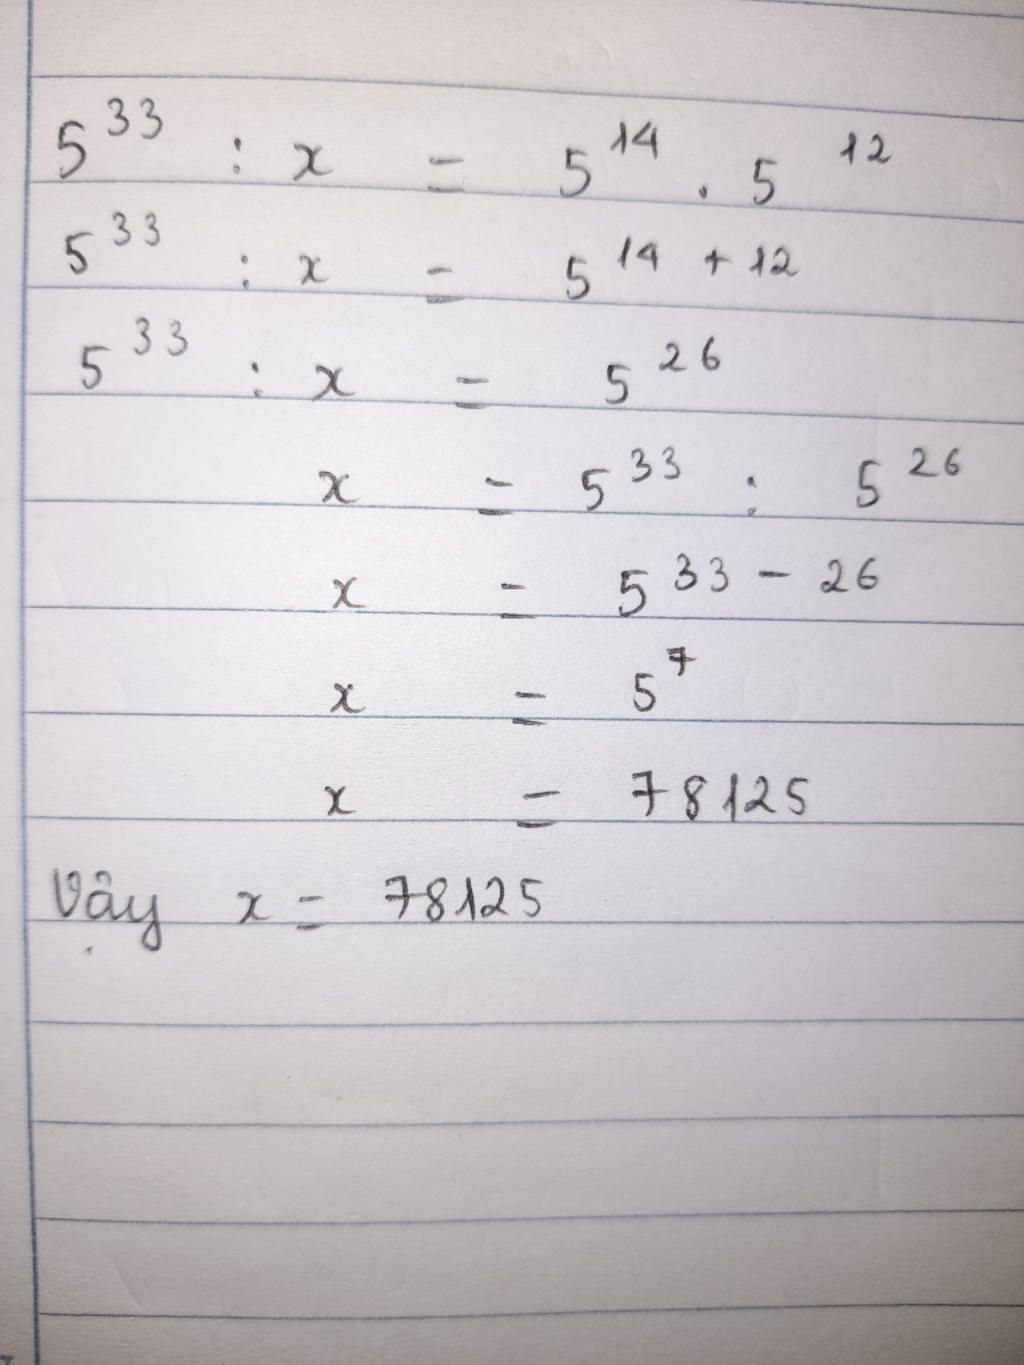 5³³ : x = 5¹⁴ . 5¹²
5³³ : x = 5¹⁴⁺¹²
5³³ : x = 5²⁶
x = 5³³ : 5²⁶
x = 5³³⁻²⁶
x = 5⁷
x = 78125
Vậy x = 78125